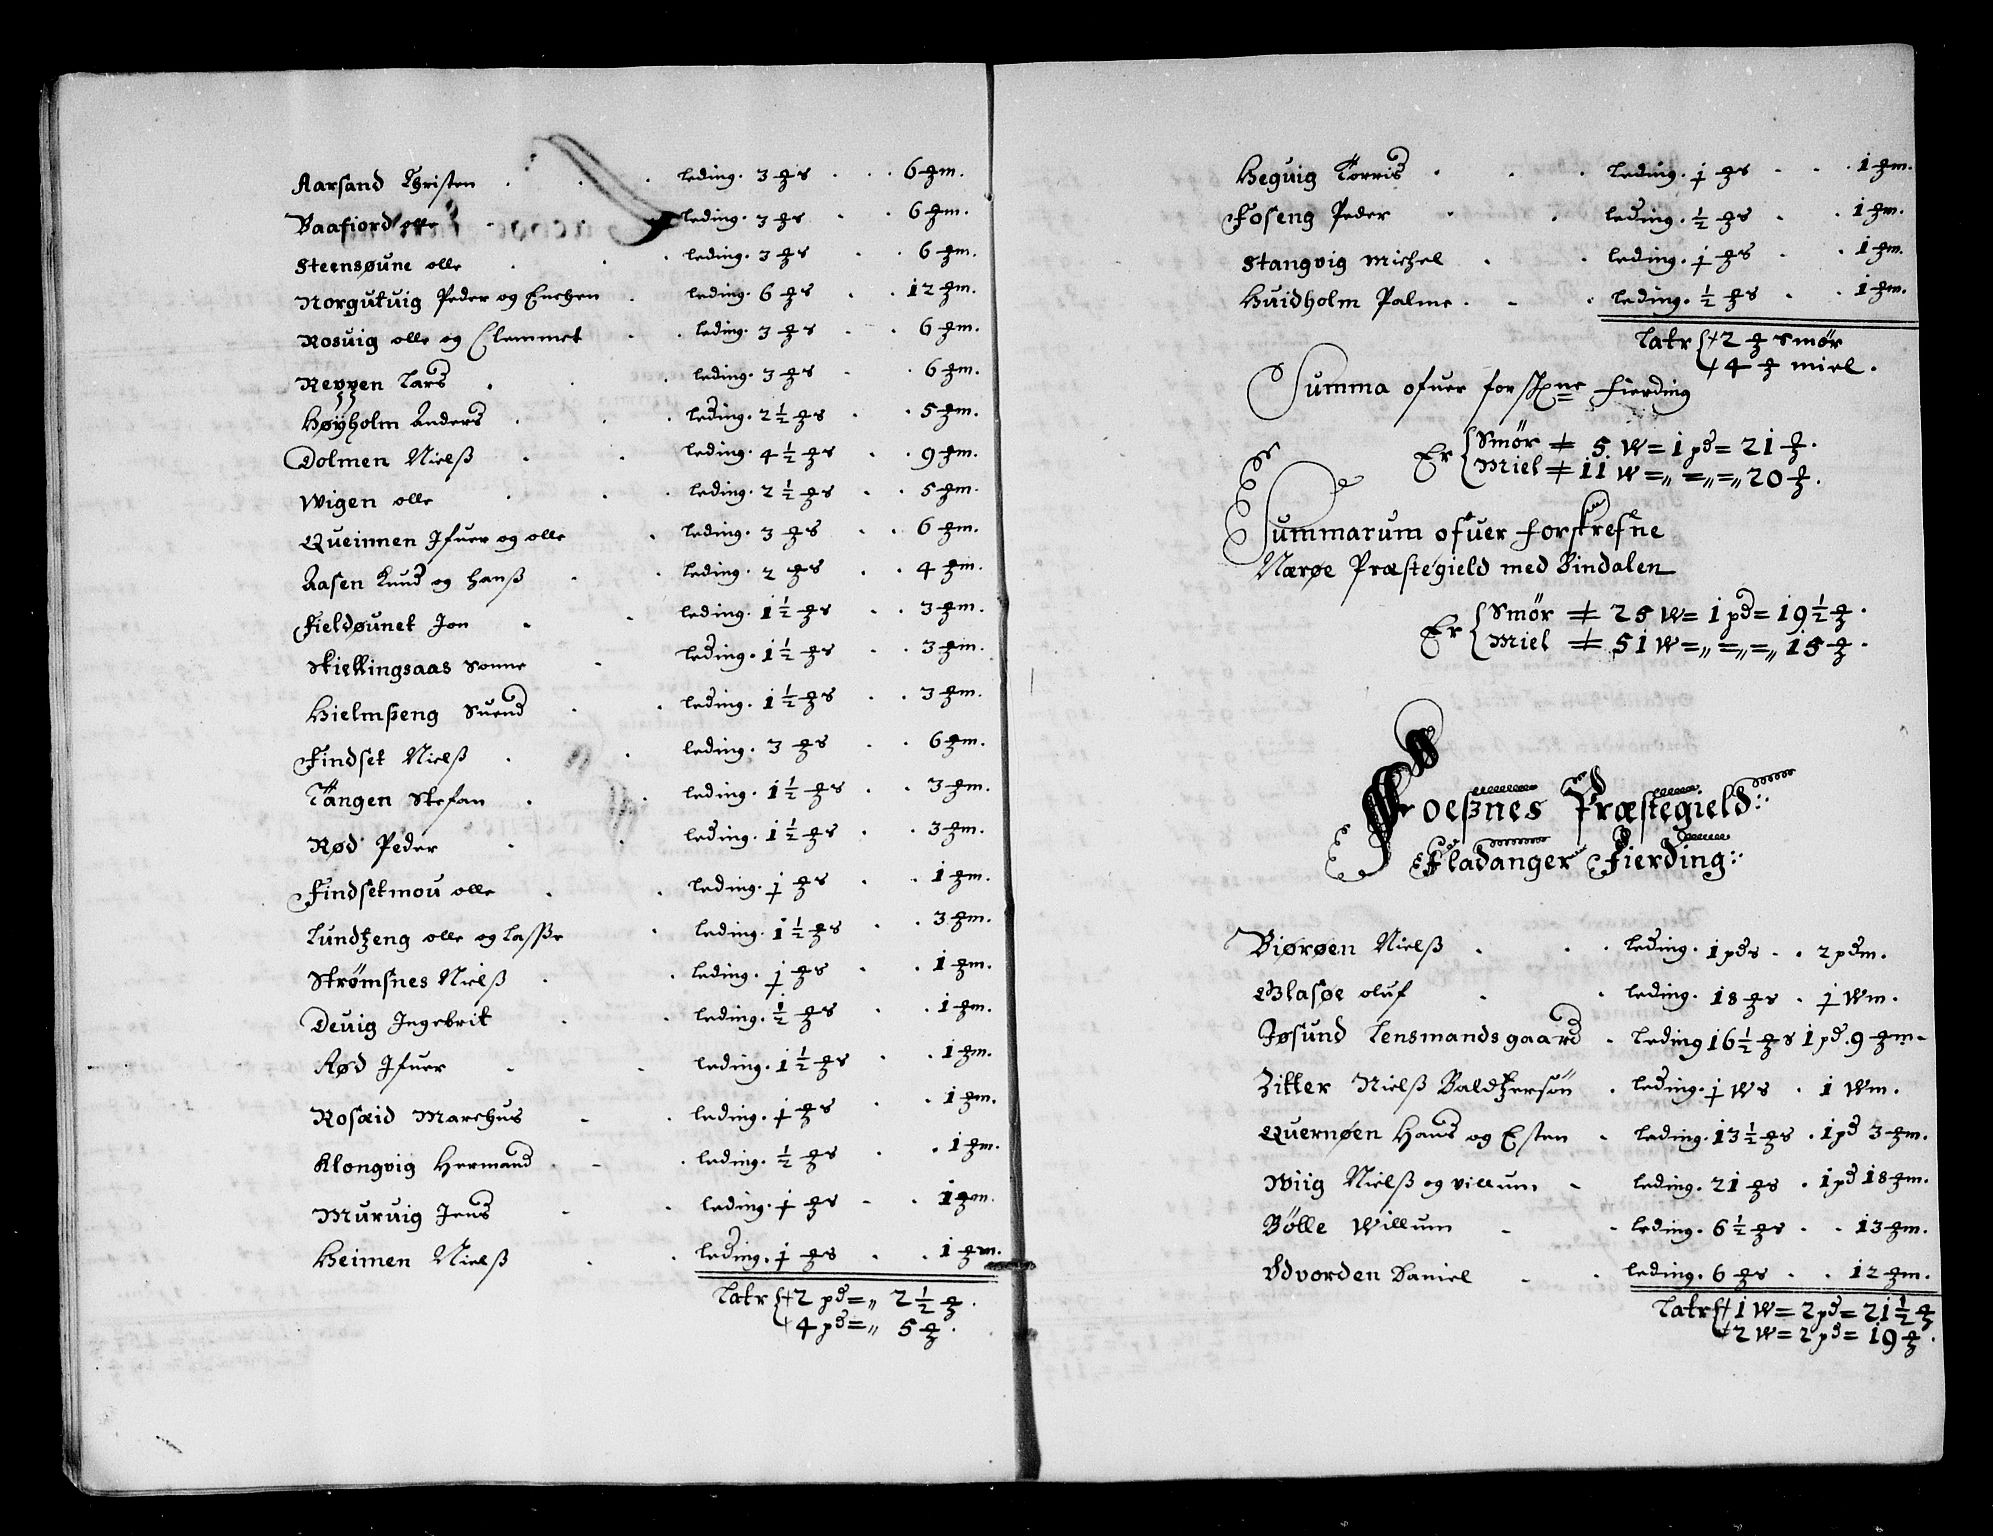 Aarsand Christen . . . leding. 3 ℔s . . . 6 ℔m.
Vaafiord olle . leding. 3 ℔s . . 6 ℔m.
Steensøune olle . . . leding. 3 ℔s . . 6 ℔m.
Norgutuig Peder og Enchen . leding. 6 ℔s . . 12 ℔m.
Rosuig olle og Clemmet . . leding. 3 ℔s . . 6 ℔m.
Reppen Lars . . . leding. 3 ℔s . 6 ℔m.
Høyholm Anders . . leding. 2 1/2 ℔s . . 5 ℔m.
Dolmen Nielß . . leding. 4 1/2 ℔s . . 9 ℔m.
Wigen olle . . . leding. 2 1/2 ℔s . . 5 ℔m.
Queinnen Ifuer og olle . leding. 3 ℔s . . 6 ℔m.
Aasen Knud og Hanß . . leding. 2 ℔s . . 4 ℔m.
Fieldøunet Jon . . leding. 1 1/2 ℔s . . 3 ℔m.
Skiellingsaas Sonne . leding. 1 1/2 ℔s . . 3 ℔m.
Hielmßeng Suend . . leding. 1 1/2 ℔s . . 3 ℔m.
Findset Nielß . . leding. 3 ℔s . . 6 ℔m.
Tangen Stefan . . leding. 1 1/2 ℔s . . 3 ℔m.
Rød Peder . . leding. 1 1/2 ℔s . . 3 ℔m.
Findsetmou olle . . leding. j ℔s . . 1 ℔m.
Lundtzeng olle og Lasße . leding. 1 1/2 ℔s . . 3 ℔m.
Strømsnes Nielß . . leding. j ℔s . . 1 ℔m.
Deuig Ingebrit . . leding. 1/2 ℔s . . 1 ℔m.
Rød Ifuer . . leding. 1 1/2 ℔s . . 1 ℔m.
Rosæid Marchus . . leding. j ℔s . . 1 ℔m.
Klongvig Hermand . . . leding. 1/2 ℔s . . 1 ℔m.
Muruig Jens . . leding. j ℔s . . 1 ℔m.
Heimen Nielß . . leding. j ℔s . . 1 ℔m.
Latr 2 pd = „ 2 1/2 ℔.
4 pd = „ 5 ℔.
Heguig Torris . . . leding. j ℔s . . . 1 ℔m.
Foseng Peder . . leding. 1/2 ℔s . . 1 ℔m.
Stangvig Michel . . leding. j ℔s . . 1 ℔m.
Huidholm Palme . . . leding. 1/2 ℔s . . 1 ℔m.
Latr 2 ℔ Smør
4 ℔ miel.
Summa ofuer for schne Fierding
Er Smør ≠ 5 W = 1 pd = 21 ℔.
Miel ≠ 11 W = „ = „ = „ 20 ℔.
Summarum ofuer forskrefne
Nærøe Præstegield med Bindalen
Er Smør ≠ 25 W = 1 pd = 19 1/2 ℔.
Miel ≠ 51 W = „ = „ = „ 15 ℔.
Foeßnes Præstegield:
Fladanger Fierding:
Biørøen Nielß . . . leding. 1 pds . . 2 pdm.
Glasøe oluf . . leding. 18 ℔s . j Wm.
Jøsund Lensmandsgaard . leding 16 1/2 ℔s 1 pd. 9 ℔m.
Zitter Nielß Baldtzersøn . leding. j Ws . 1 Wm.
Quernøen Hans og Esten . leding. 13 1/2 ℔s . 1 pd 3 ℔m.
Wiig Nielß og villum . leding. 21 ℔s . 1 pd 18 ℔m.
Bölle Willum . . leding. 6 1/2 ℔s . . 13 ℔m.
Vdvorden Daniel . . leding. 6 ℔s . . 12 ℔m.
Latr 1 W = 2 pd = 21 1/2 ℔
2 W = 2 pd = 19 ℔.